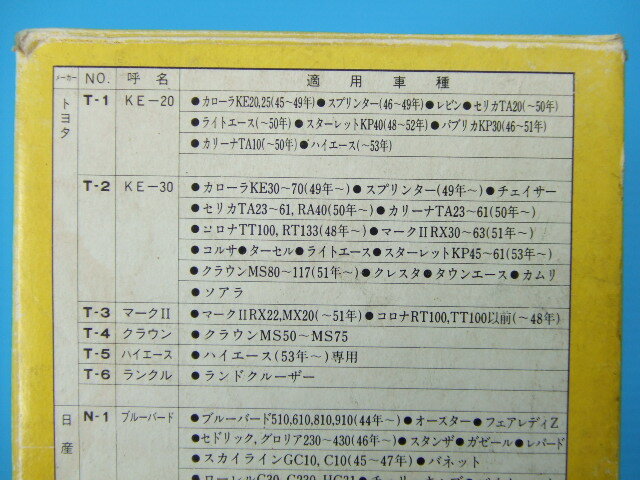 メーカー NO. 呼名 適用車種
トヨタ
T-1 KE-20 ●カローラKE20,25(45~49年)●スプリンター(46~49年)●レビン●セリカTA20(~50年)
●ライトエース(~50年)●スターレットKP40(48~52年)●パブリカKP30(46~51年)
●カリーナTA10(~50年)●ハイエース(~53年)
T-2 KE-30 ●カローラKE30~70(49年~)●スプリンター(49年~)●チェイサー
●セリカTA23~61,RA40(50年~)●カリーナTA23~61(50年~)
●コロナTT100,RT133(48年~)●マークⅡRX30~63(51年~)
●コルサ●ターセル●ライトエース●スターレットKP45~61(53年~)
●クラウンMS80~117(51年~)●クレスタ●タウンエース●カムリ
●ソアラ
T-3 マークⅡ ●マークⅡRX22,MX20(~51年)●コロナRT100,TT100以前(~48年)
T-4 クラウン ●クラウンMS50~MS75
T-5 ハイエース ●ハイエース(53年~)専用
T-6 ランクル ●ランドクルーザー
日産
N-1 ブルーバード ●ブルーバード510,610,810,910(44年~)●オースター●フェアレディZ
●セドリック,グロリア230~430(46年~)●スタンザ●ガゼール●レパード
●スカイラインGC10,C10(45~47年)●バネット
●ローレルC30,C230,HC31